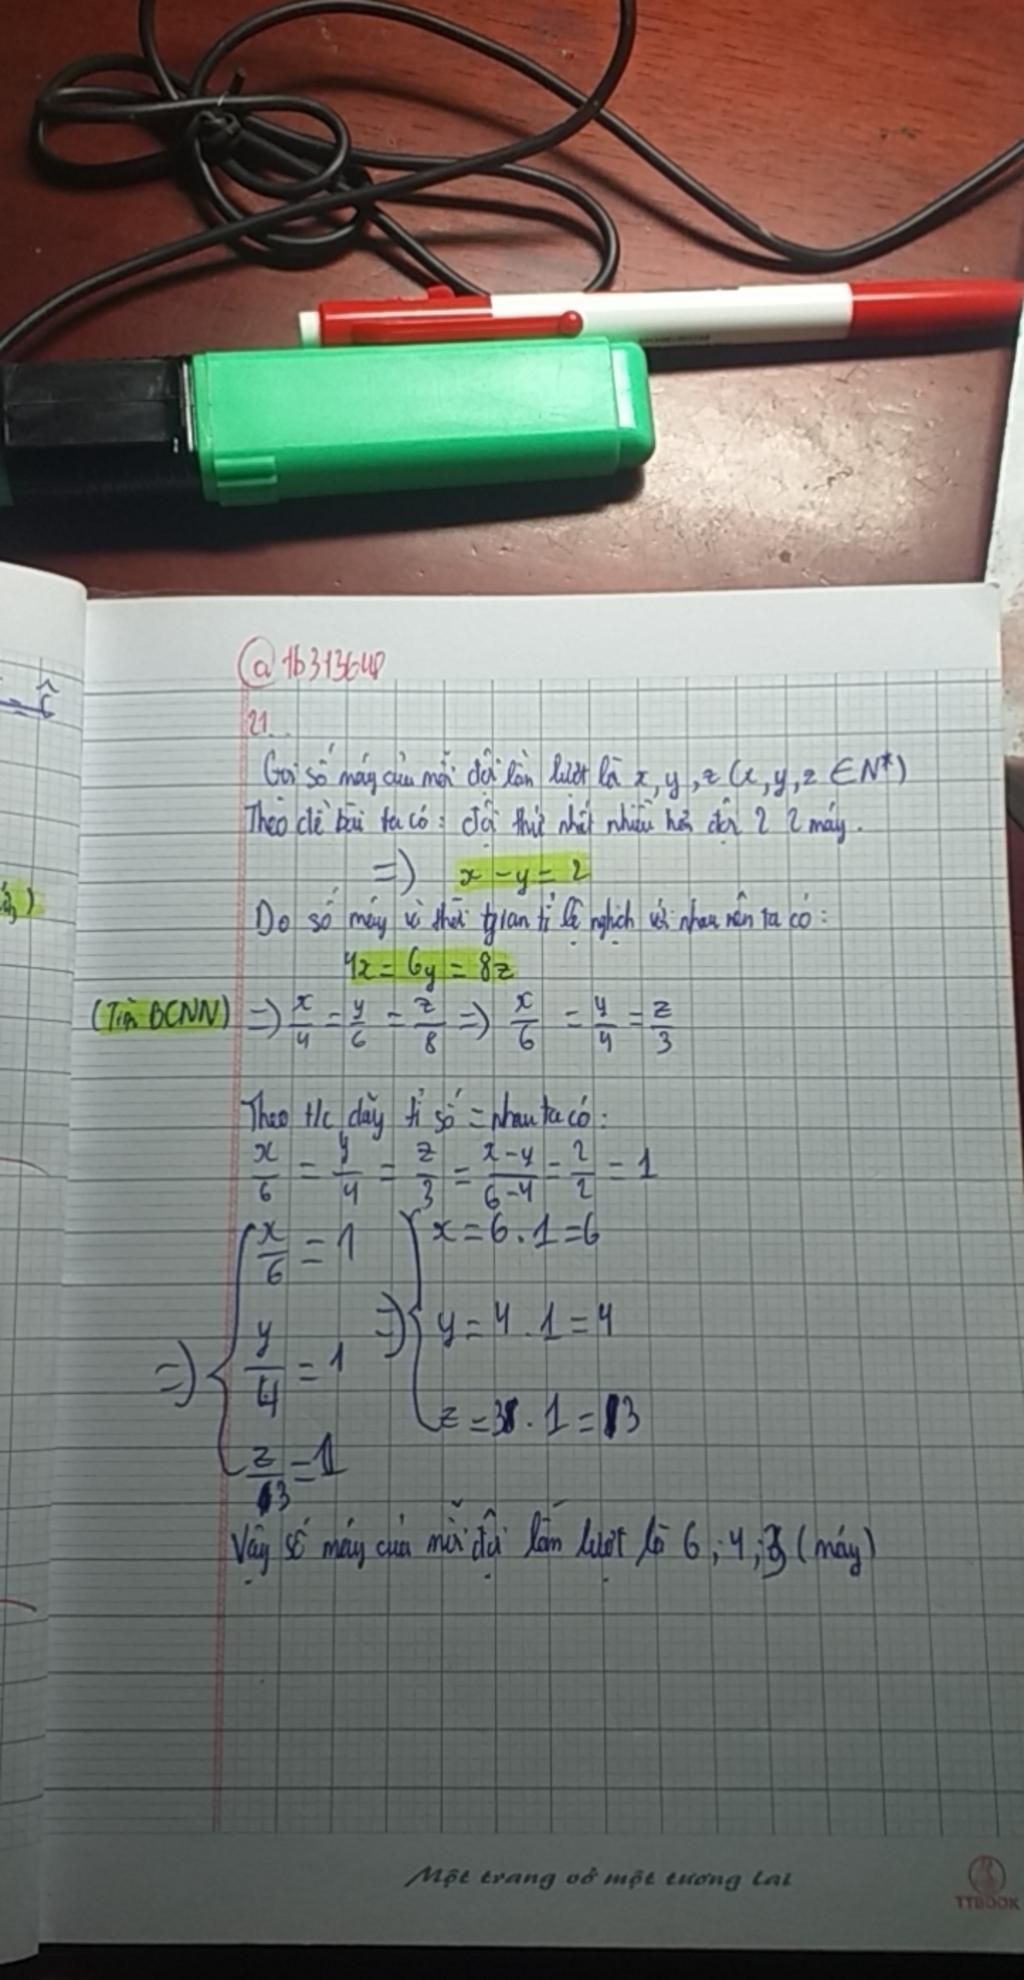 21.
Gọi số máy của mỗi đội lần lượt là x, y, z (x, y, z ∈ N*)
Theo đề bài ta có: đội thứ nhất nhiều hơn đội 2 2 máy.
=> x - y = 2
Do số máy và thời gian tỉ lệ nghịch với nhau nên ta có:
4x = 6y = 8z
(Tìm BCNN) => x/4 = y/6 = z/8 => x/6 = y/4 = z/3
Theo t/c dãy tỉ số = nhau ta có:
x/6 = y/4 = z/3 = x-y/6-4 = 2/2 = 1
x/6 = 1 x = 6 . 1 = 6
=> y/4 = 1 => y = 4 . 1 = 4
z/3 = 1 z = 3 . 1 = 3
Vậy số máy của mỗi đội lần lượt là 6; 4; 3 (máy)
Một trang vở một tương lai
TTBOOK